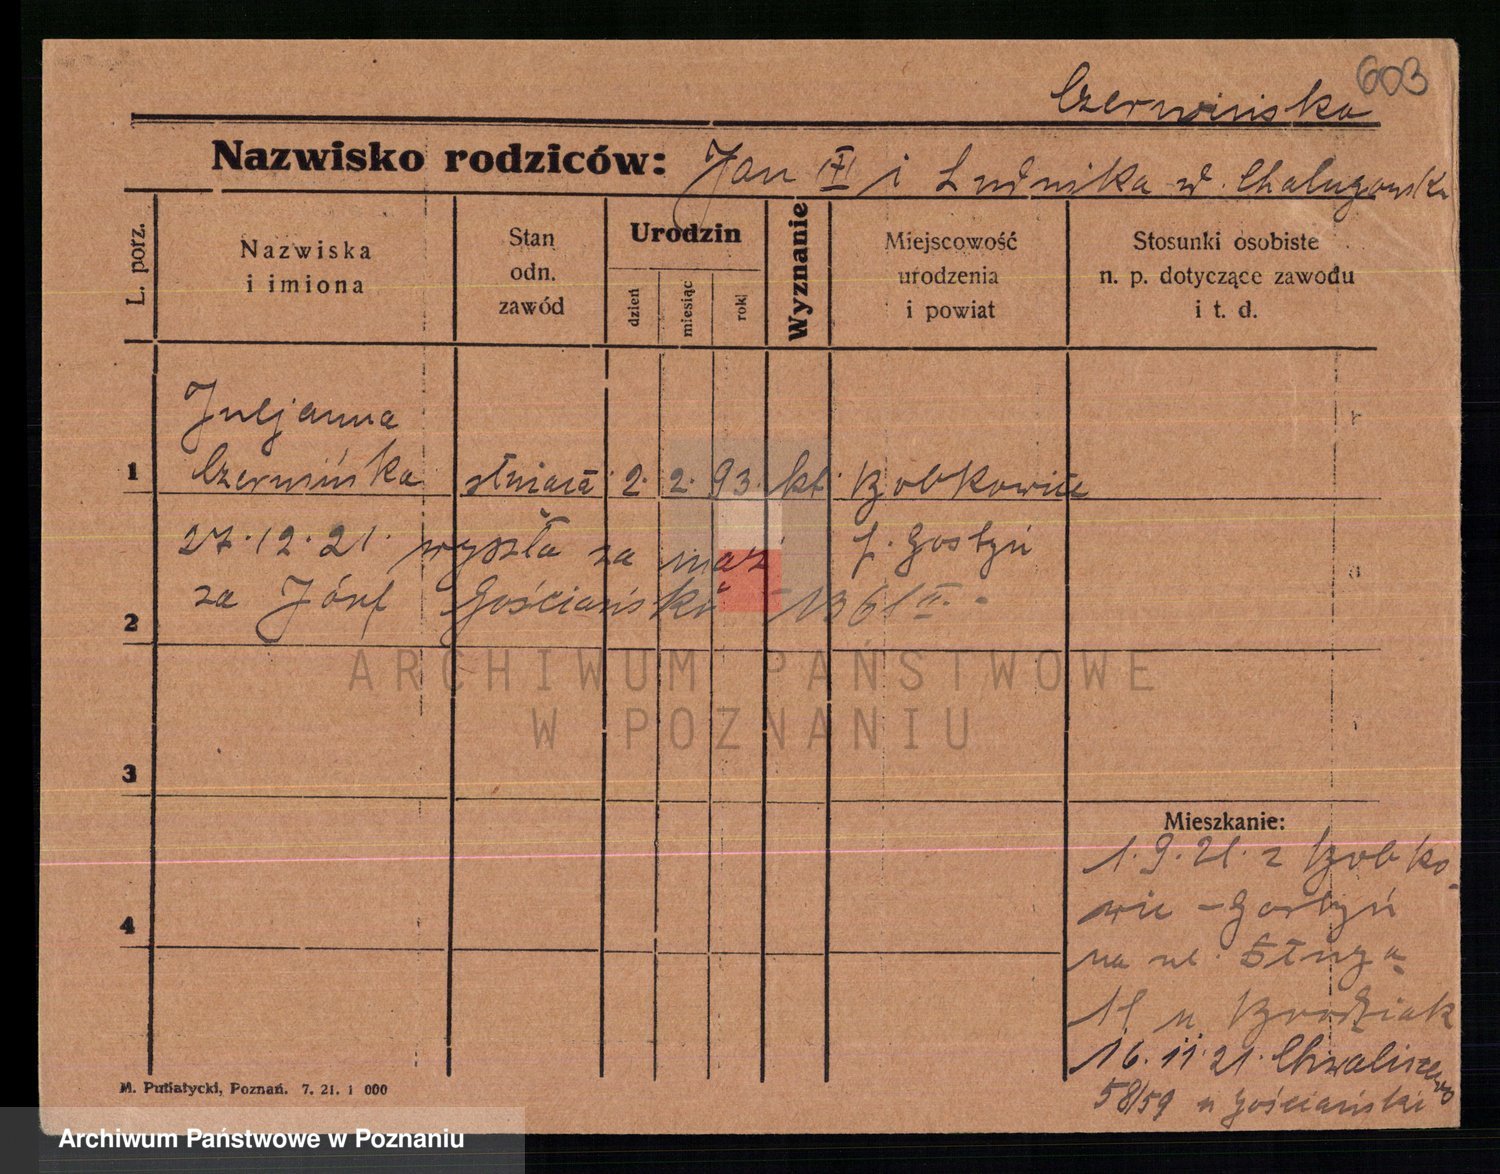 603
Czerwińska
Nazwisko rodziców: Jan i Ludwika
L. porz.
Nazwiska i imiona
Stan odn. zawód
Urodzin
dzień
miesiąc
rok
Wyznanie
Miejscowość urodzenia i powiat
Stosunki osobiste n. p. dotyczące zawodu i t. d.
Juljanna
1 Czerwińska 2. 2. 93. kt.
27.12.21. wyszła za mąż p. Gostyń
2 za Józef Gościański
ARCHIWUM PAŃSTWOWE
W POZNANIU
3
Mieszkanie:
1.9.21. z
4 Gostyń
na ul. Długą
11 u
16.11.21. Chwaliszewo
58/59 u Gościański
M. Putiatycki, Poznań. 7. 21. 1 000
Archiwum Państwowe w Poznaniu